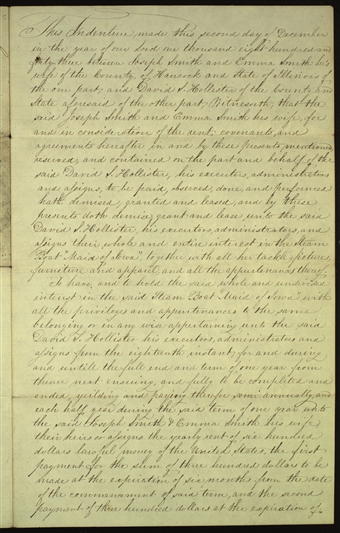 This Indenture, made this second day of December
in the year of our Lord one thousand eight hundred and
forty three between Joseph Smith and Emma Smith his
wife of the County of Hancock and State of Illinois of
the one part, and David S. Hollister of the County and
State aforesaid of the other part Witnesseth, that the
said Joseph Smith and Emma Smith his wife, for
and in consideration of the rent, covenants and
agreements hereafter in and by these presents mentioned
reserved and contained on the part and behalf of the
said David S. Hollister, his executors, administrators
and assigns, to be paid, observed, done, and performed
hath demised, granted and leased, and by these
presents doth demise, grant and lease unto the said
David S. Hollister, his executors, administrators, and
assigns their whole and entire interest in the Steam
Boat "Maid of Iowa" together with all her tackle,
furniture and apparel and all the appurtenances thereof
To have, and to hold the said whole and undivided
interest in the said Steam Boat "Maid of Iowa" with
all the privileges and appurtenances to the same
belonging or in any wise appertaining unto the said
David S. Hollister his executors, administrators and
assigns from the eighteenth instant, for and during
and untill the full end and term of one year from
thence next ensuing, and fully to be completed and
ended, yeilding and paying therefor semi annually, and
each half year during the said term of one year unto
the said Joseph Smith & Emma Smith his wife,
their heirs or assigns the yearly rent of six hundred
dollars lawful money of the United States, the first
payment for the sum of three hundred dollars to be
made at the expiration of six months from the date
of the commencement of said term, and the second
payment of three hundred dollars at the expiration of